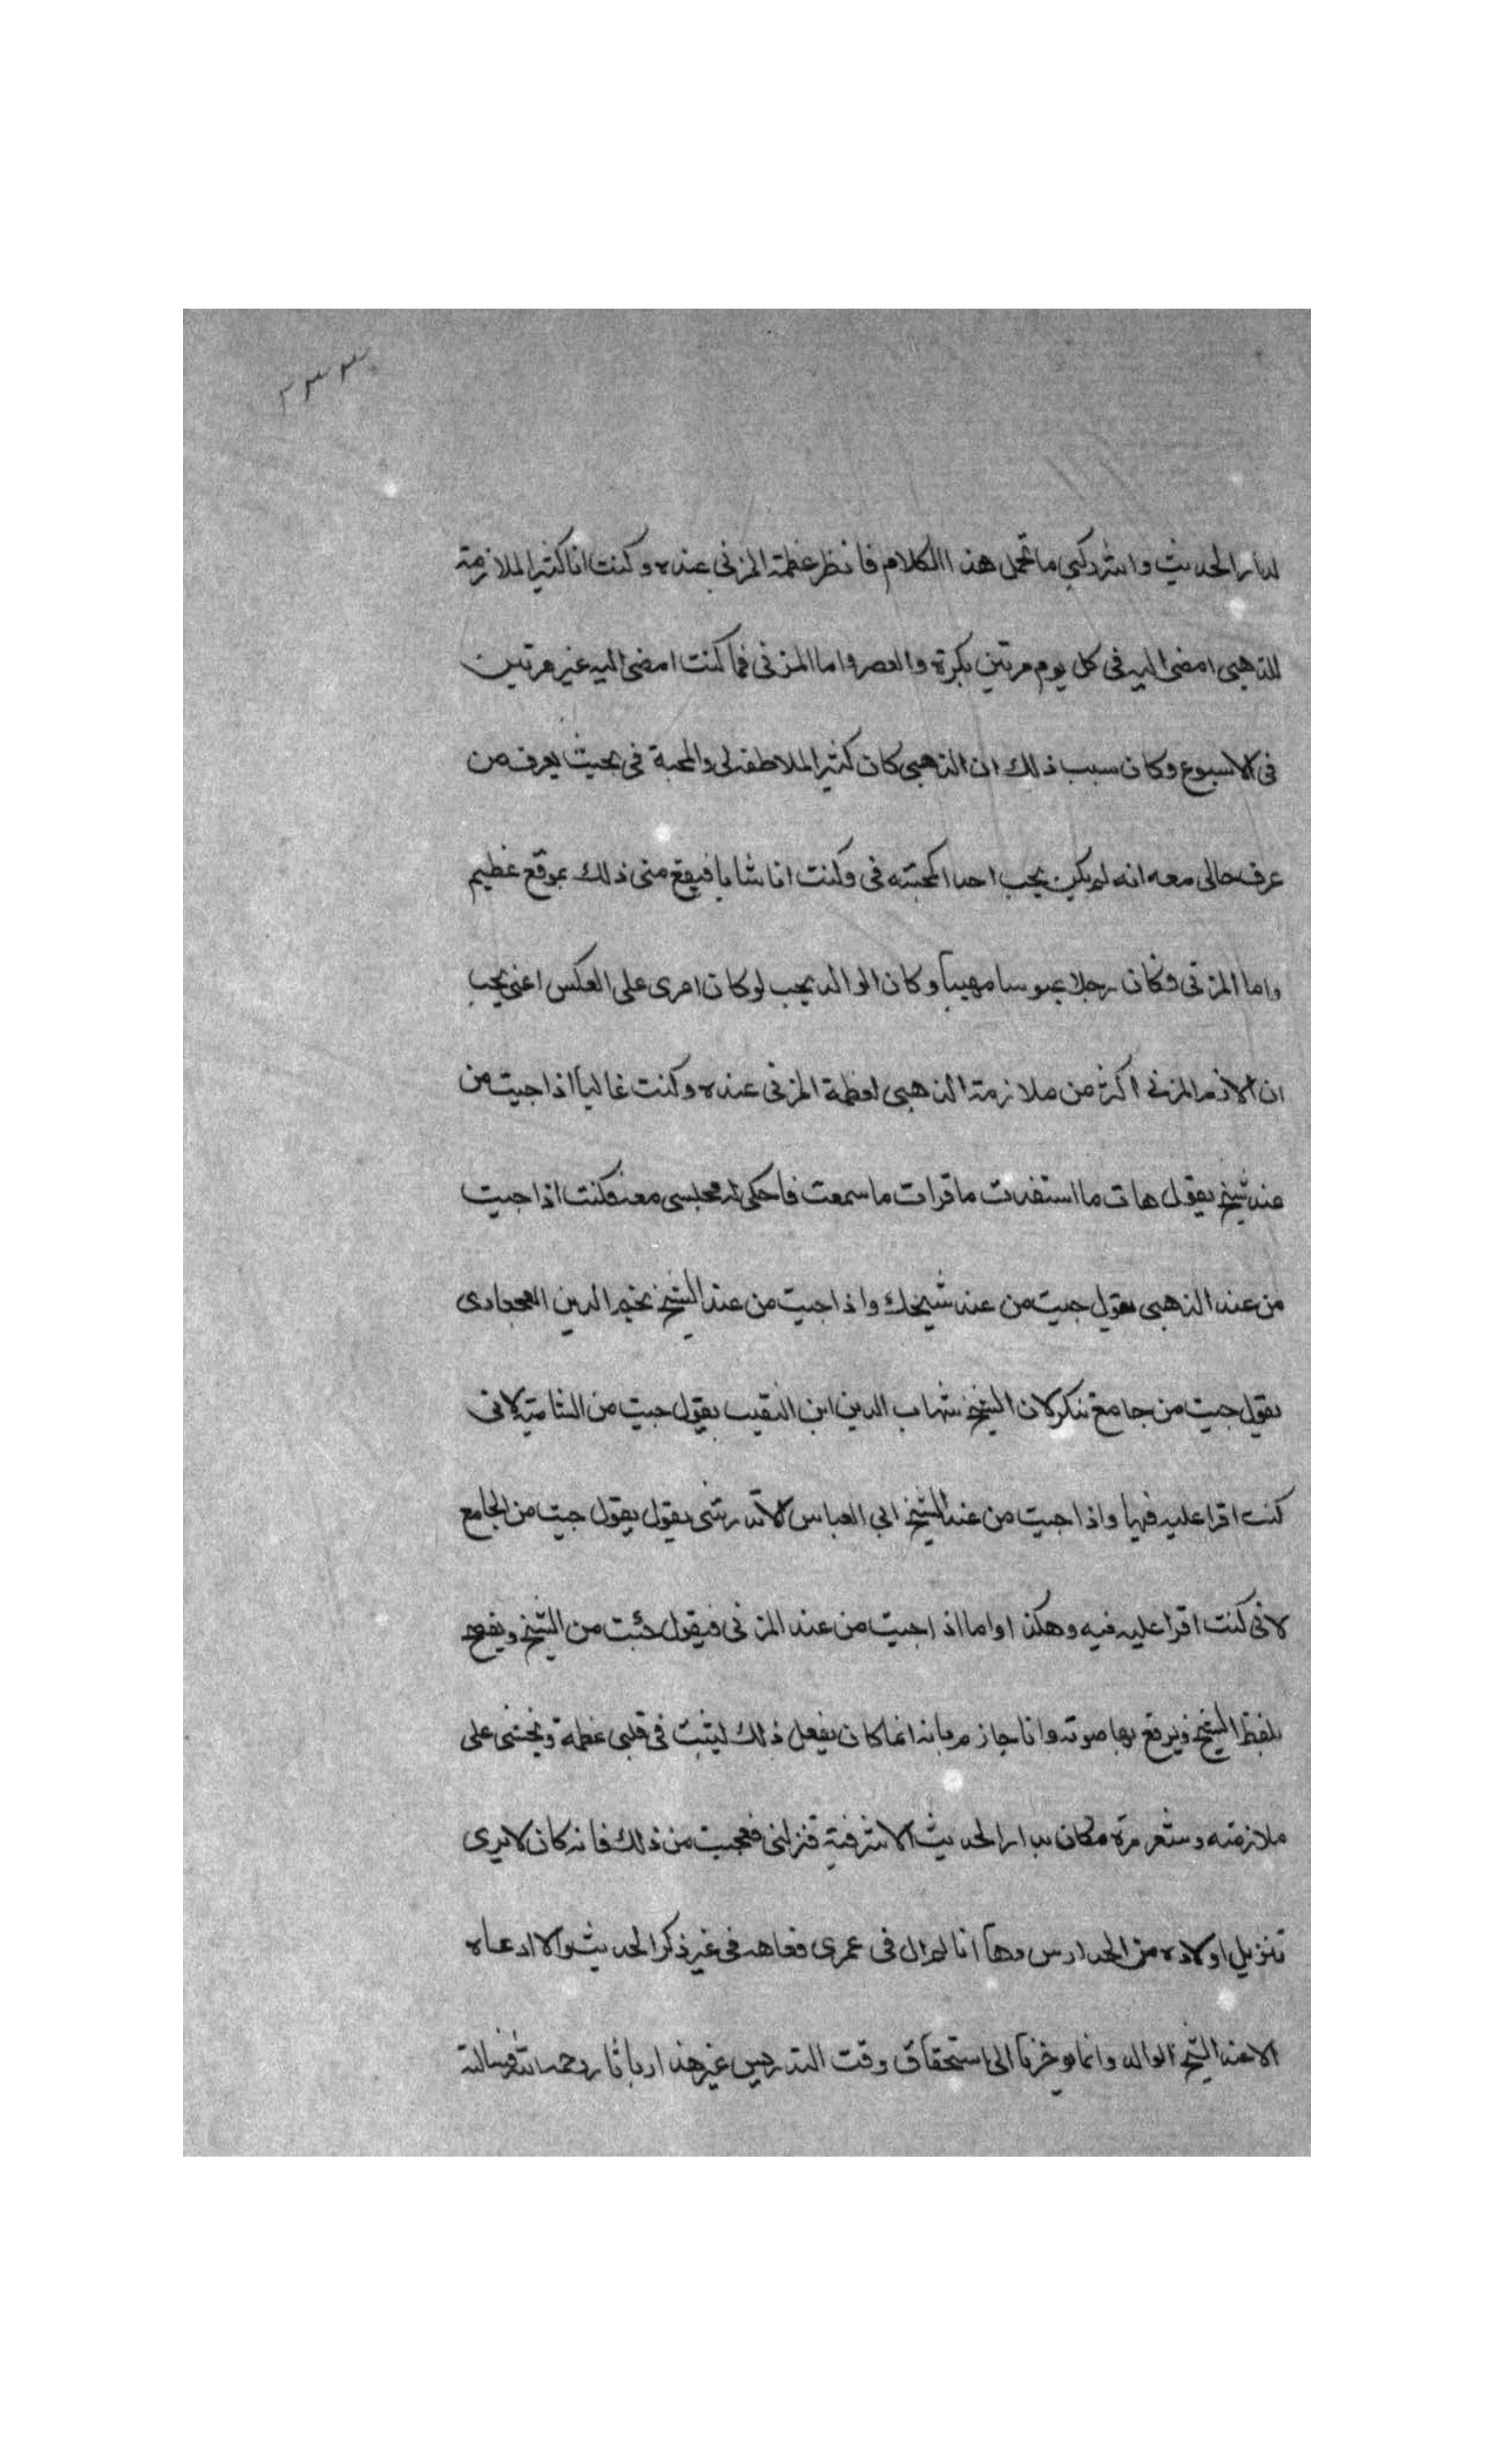 ٢٣٣
لدار الحديث وانثر دكبي ما تحمل هذا الكلام فانظر عظمة المزني عنده وكنت انا كثير الملازمة
للذهبي امضى اليه في كل يوم مرتين بكرة والعصر واما المزني فما كنت امضى اليه غير مرتين
في الاسبوع وكان سبب ذلك ان الذهبي كان كثير الملاطفه لي والمحبة في بحيث يعرف من
عرف حالى معه انه لم يكن يحب احدا كمحبته في وكنت انا شابا فيقع مني ذلك بموقع عظيم
واما المزني فكان رجلا عبوسا مهيبا وكان الوالد يحب لو كان امرى على العكس اعنى يحب
ان الازم المزني اكثر من ملازمة الذهبي لعظمة المزني عنده وكنت غالبا اذا جيت من
عند شيخ يقول هات ما استفدت ما قرات ما سمعت فاحكي له مجلسي معه فكنت اذا جيت
من عند الذهبي يقول جيت من عند شيخك واذا جيت من عند الشيخ نجم الدين القحجادى
يقول جيت من جامع تنكر لان الشيخ شهاب الدين ابن النقيب يقول جيت من الشامية لانى
كنت اقرا عليه فيها واذا جيت من عند الشيخ ابي العباس الاندرشى يقول يقول جيت من الجامع
لانى كنت اقرا عليه فيه وهكذا واما اذا جيت من عند المزني فيقول جئت من الشيخ ويفصح
بلفظ الشيخ ويرفع بها صوته وانا جازم بانه انما كان يفعل ذلك ليثبت في قلبي عظمة ويحثنى على
ملازمته وشغر مرة مكان بدار الحديث الاشرفية فنزلنى فعجبت من ذلك فانه كان لايرى
تنزيل اولاده من المدارس وها انا لم ال في عمرى فقاهه في غير ذكر الحديث ولا ادعاه
الا عند الشيخ الوالد وانما يوخرنا الى استحقاق وقت التدريس غير هذا ربانا رحمه الله فسالته